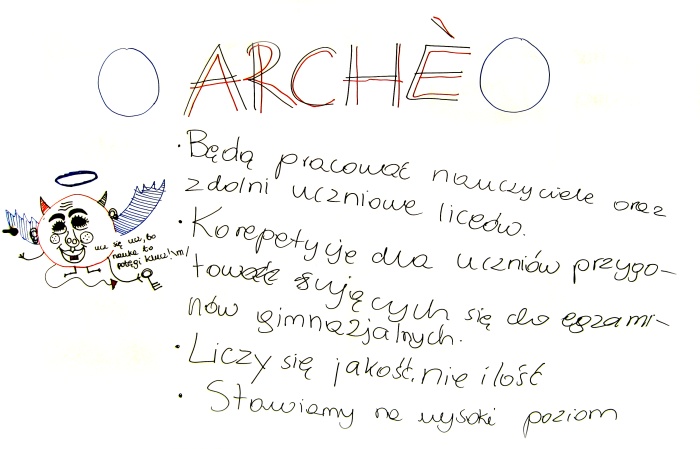 ARCHÈ
• Będą pracować nauczyciele oraz
zdolni uczniowie liceów.
• Korepetycje dla uczniów przygo-
towującuch się do egzami-
nów gimnazjalnych.
• Liczy się jakość, nie ilość
• Stawiamy na wysoki poziom
ucz się ucz, bo
nauka to
potęgi klucz \m/